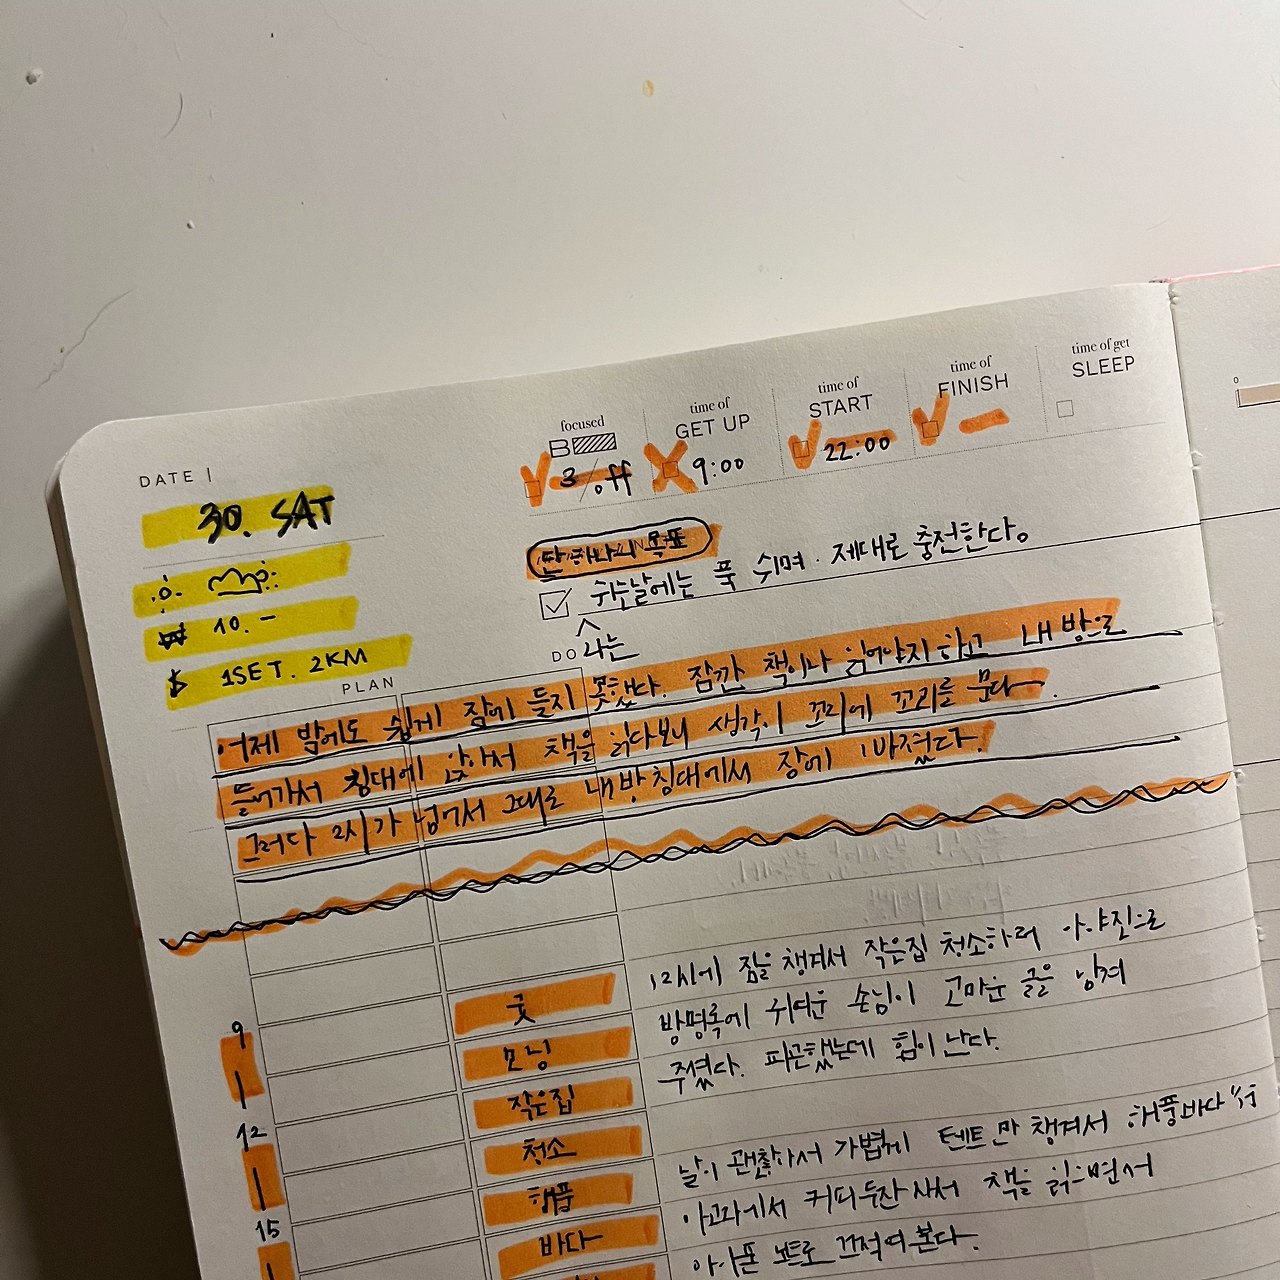 focused
time of GET UP
time of START
time of FINISH
time of get SLEEP
3/off
9:00
22:00
DATE |
30. SAT
10.-
$ 1SET. 2KM
딴 하나의 목표
쉬는날에는 푹 쉬며. 제대로 충전한다.
나는
PLAN
DO
어제 밤에도 쉽게 잠에 들지 못했다. 잠깐 책이나 읽어야지 하고 내 방으로
들어가서 침대에 앉아서 책을 읽다보니 생각이 꼬리에 꼬리를 문다.
그러다 2시가 넘어서 그대로 내방 침대에서 잠에 빠졌다.
12시에 짐을 챙겨서 작은집 청소하러 아야진으로
방명록에 귀여운 손님이 고마운 글을 남겨
주셨다. 피곤했는데 힘이 난다.
날이 괜찮아서 가볍게 텐트만 챙겨서 해풍바다
에서 커피두잔 사서 책을 읽으면서
아이폰 노트로 끄적여본다.
9
12
15
굿
모닝
작은집
청소
해풍
바다
0